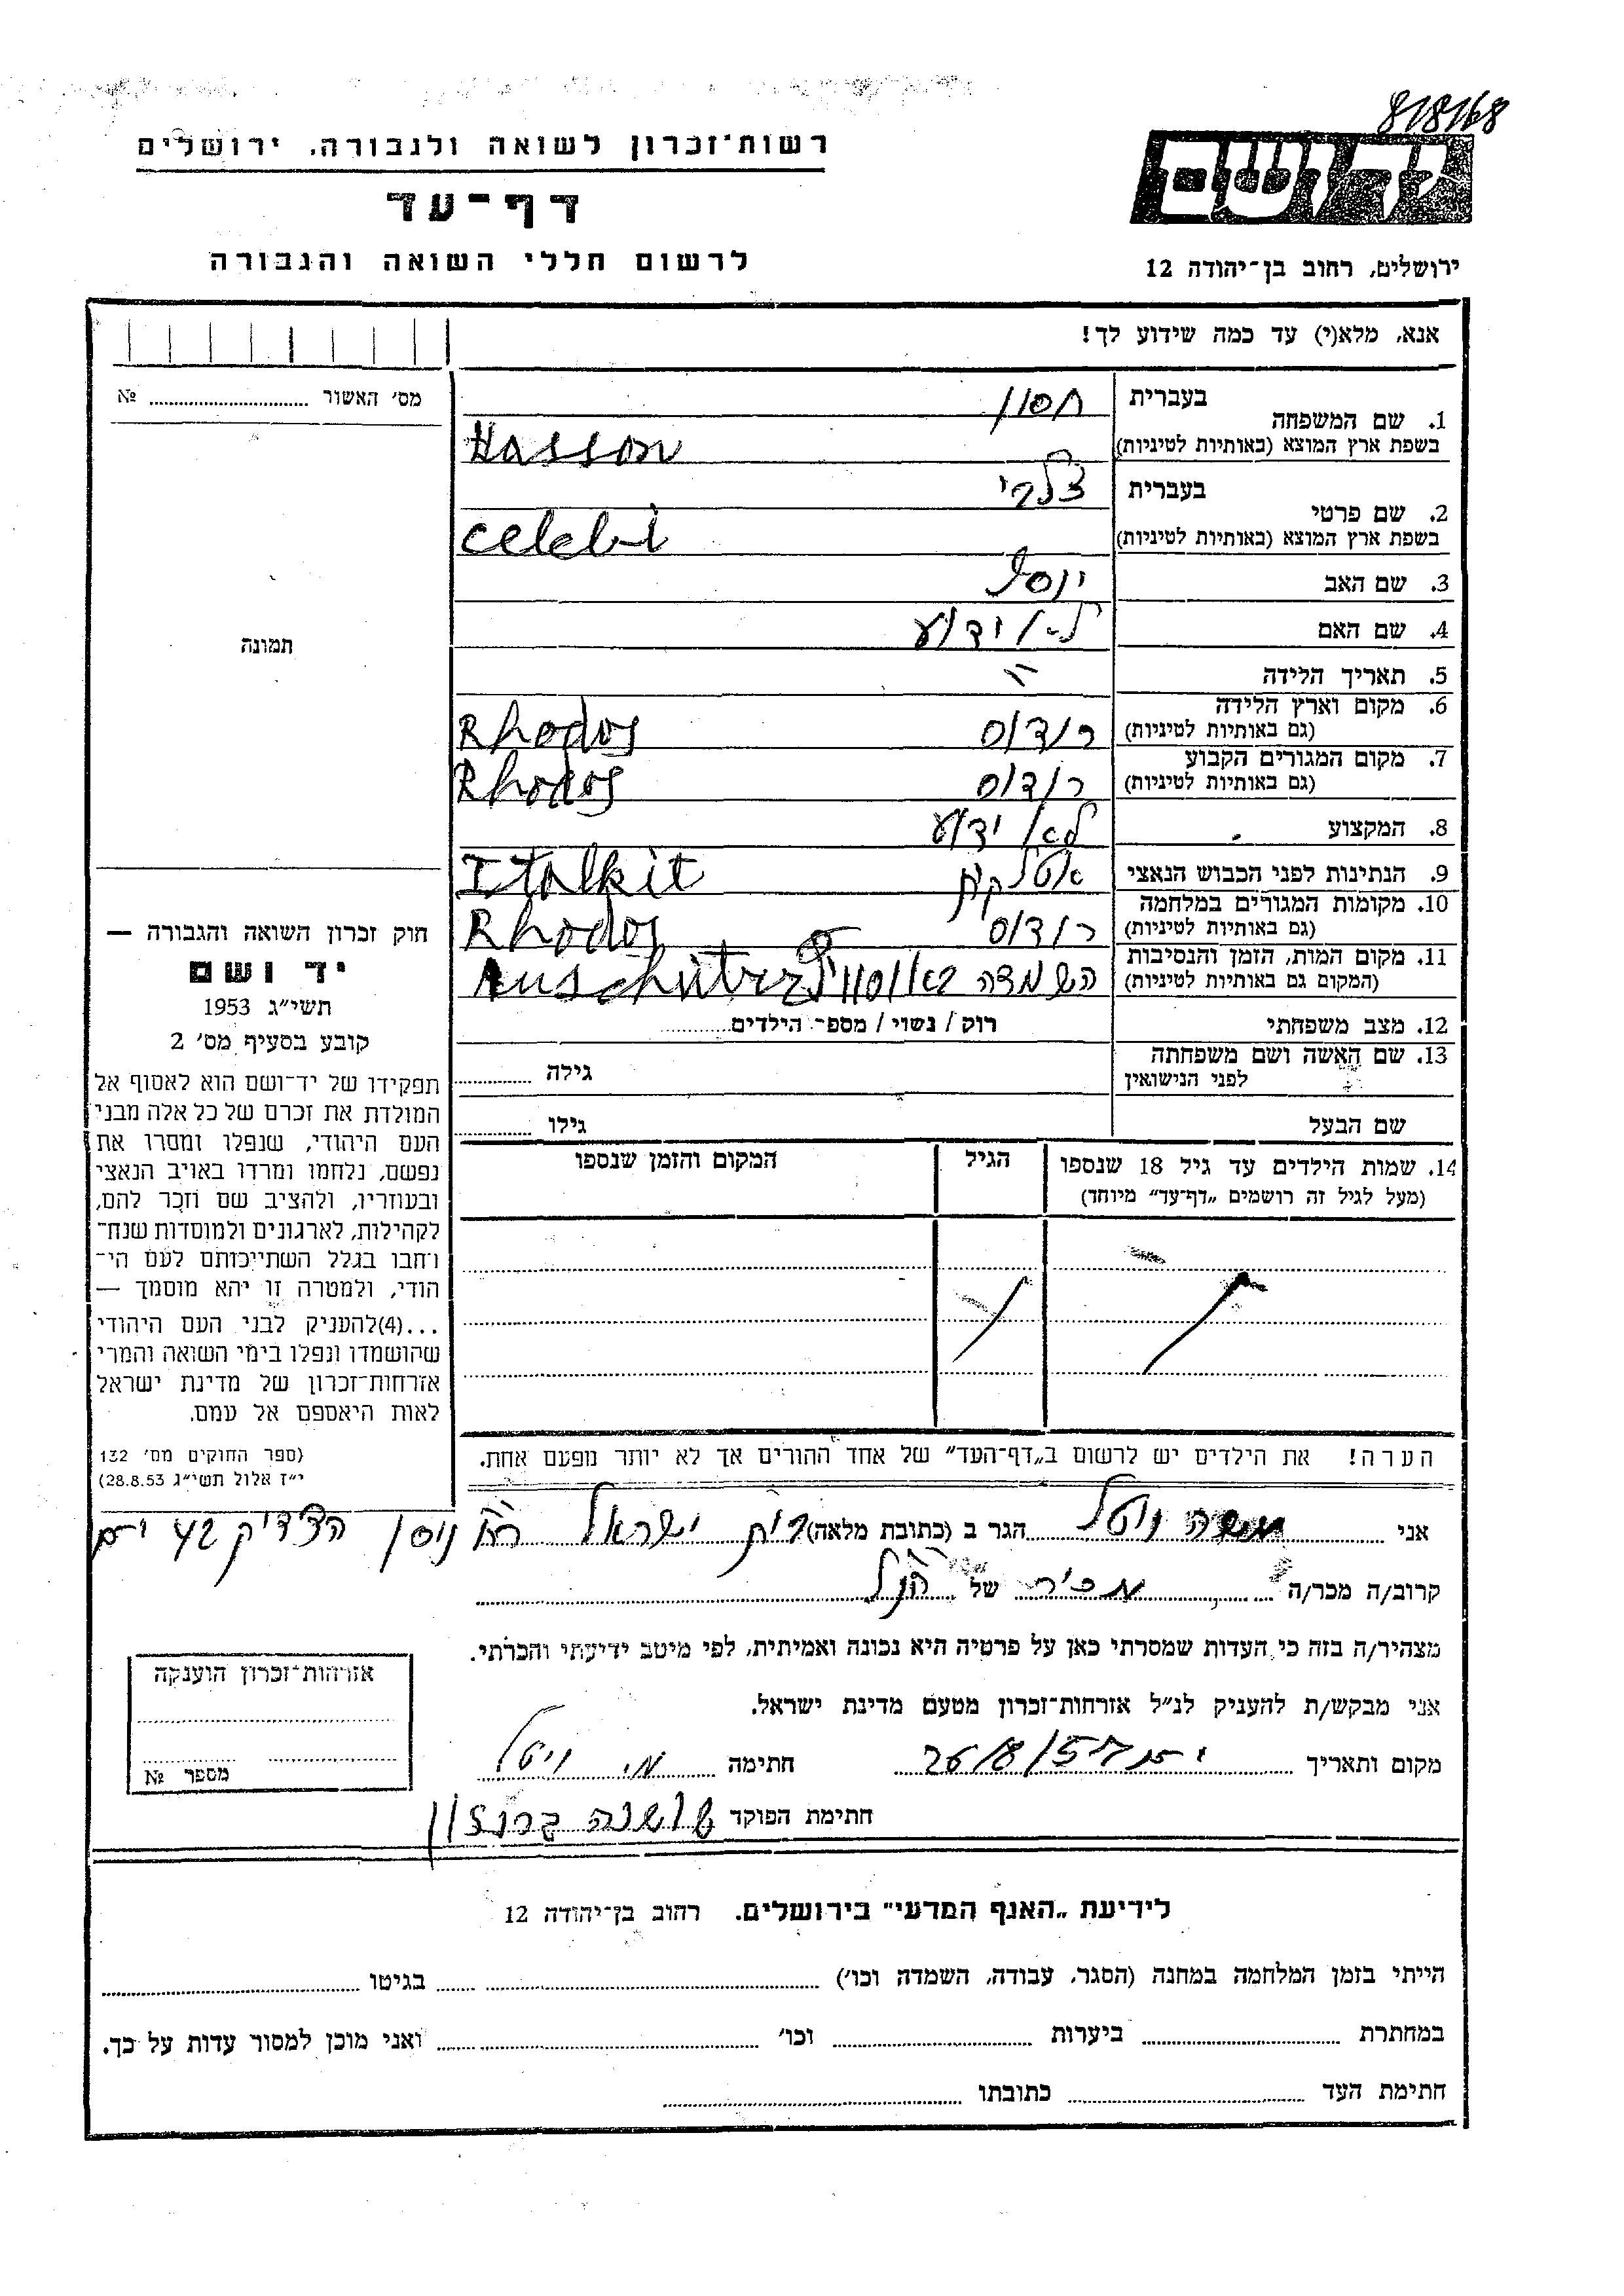 818168
רשות־זכרון לשואה ולגבורה, ירושלים
יד ושם
דף־עד
לרשום חללי השואה והגבורה
ירושלים, רחוב בן־יהודה 12
אנא, מלא(י) עד כמה שידוע לך!
מס׳ האשור ........ №
1. שם המשפחה
בעברית חסון
בשפת ארץ המוצא (באותיות לטיניות) Hasson
2. שם פרטי
בעברית צלבי
בשפת ארץ המוצא (באותיות לטיניות) Celebi
3. שם האב יוסף
4. שם האם לא ידוע
5. תאריך הלידה ״
6. מקום וארץ הלידה
(גם באותיות לטיניות) רודוס Rhodos
7. מקום המגורים הקבוע
(גם באותיות לטיניות) רודוס Rhodos
8. המקצוע לא ידוע
9. הנתינות לפני הכבוש הנאצי אטלקית Italkit
10. מקומות המגורים במלחמה
(גם באותיות לטיניות) רודוס Rhodos
11. מקום המות, הזמן והנסיבות
(המקום גם באותיות לטיניות) השמדה Auschvitz
12. מצב משפחתי רוק / נשוי / מספר הילדים........
13. שם האשה ושם משפחתה
לפני הנישואין גילה ........
שם הבעל גילו ........
14. שמות הילדים עד גיל 18 שנספו
(מעל לגיל זה רושמים „דף־עד״ מיוחד)
הגיל
המקום והזמן שנספו
תמונה
חוק זכרון השואה והגבורה —
יד ושם
תשי״ג 1953
קובע בסעיף מס׳ 2
תפקידו של יד־ושם הוא לאסוף אל
המולדת את זכרם של כל אלה מבני
העם היהודי, שנפלו ומסרו את
נפשם, נלחמו ומרדו באויב הנאצי
ובעוזריו, ולהציב שם וזכר להם,
לקהילות, לארגונים ולמוסדות שנח־
רחבו בגלל השתייכותם לעם הי־
הודי, ולמטרה זו יהא מוסמך —
...(4)להעניק לבני העם היהודי
שהושמדו ונפלו בימי השואה והמרי
אזרחות־זכרון של מדינת ישראל
לאות היאספם אל עמם.
(ספר החוקים מס׳ 132
י״ז אלול תשי״ג 28.8.53)
הערה! את הילדים יש לרשום ב„דף־העד״ של אחד ההורים אך לא יותר מפעם אחת.
אני משה ויטל הגר ב (כתובת מלאה) בית ישראל רח׳ ניסן הצדיק 42
קרוב/ה מכר/ה מכיר של הנ״ל
מצהיר/ה בזה כי העדות שמסרתי כאן על פרטיה היא נכונה ואמיתית, לפי מיטב ידיעתי והכרתי.
אני מבקש/ת להעניק לנ״ל אזרחות־זכרון מטעם מדינת ישראל.
מקום ותאריך 26/8/57 חתימה מ. ויטל
חתימת הפוקד שושנה
אזרחות־זכרון הוענקה
מספר №
לידיעת „האנף המדעי״ בירושלים. רחוב בן־יהודה 12
הייתי בזמן המלחמה במחנה (הסגר, עבודה, השמדה וכו׳) ........ בגיטו ........
במחתרת ........ ביערות ........ וכו׳ ........ ואני מוכן למסור עדות על כך.
חתימת העד ........ כתובתו ........